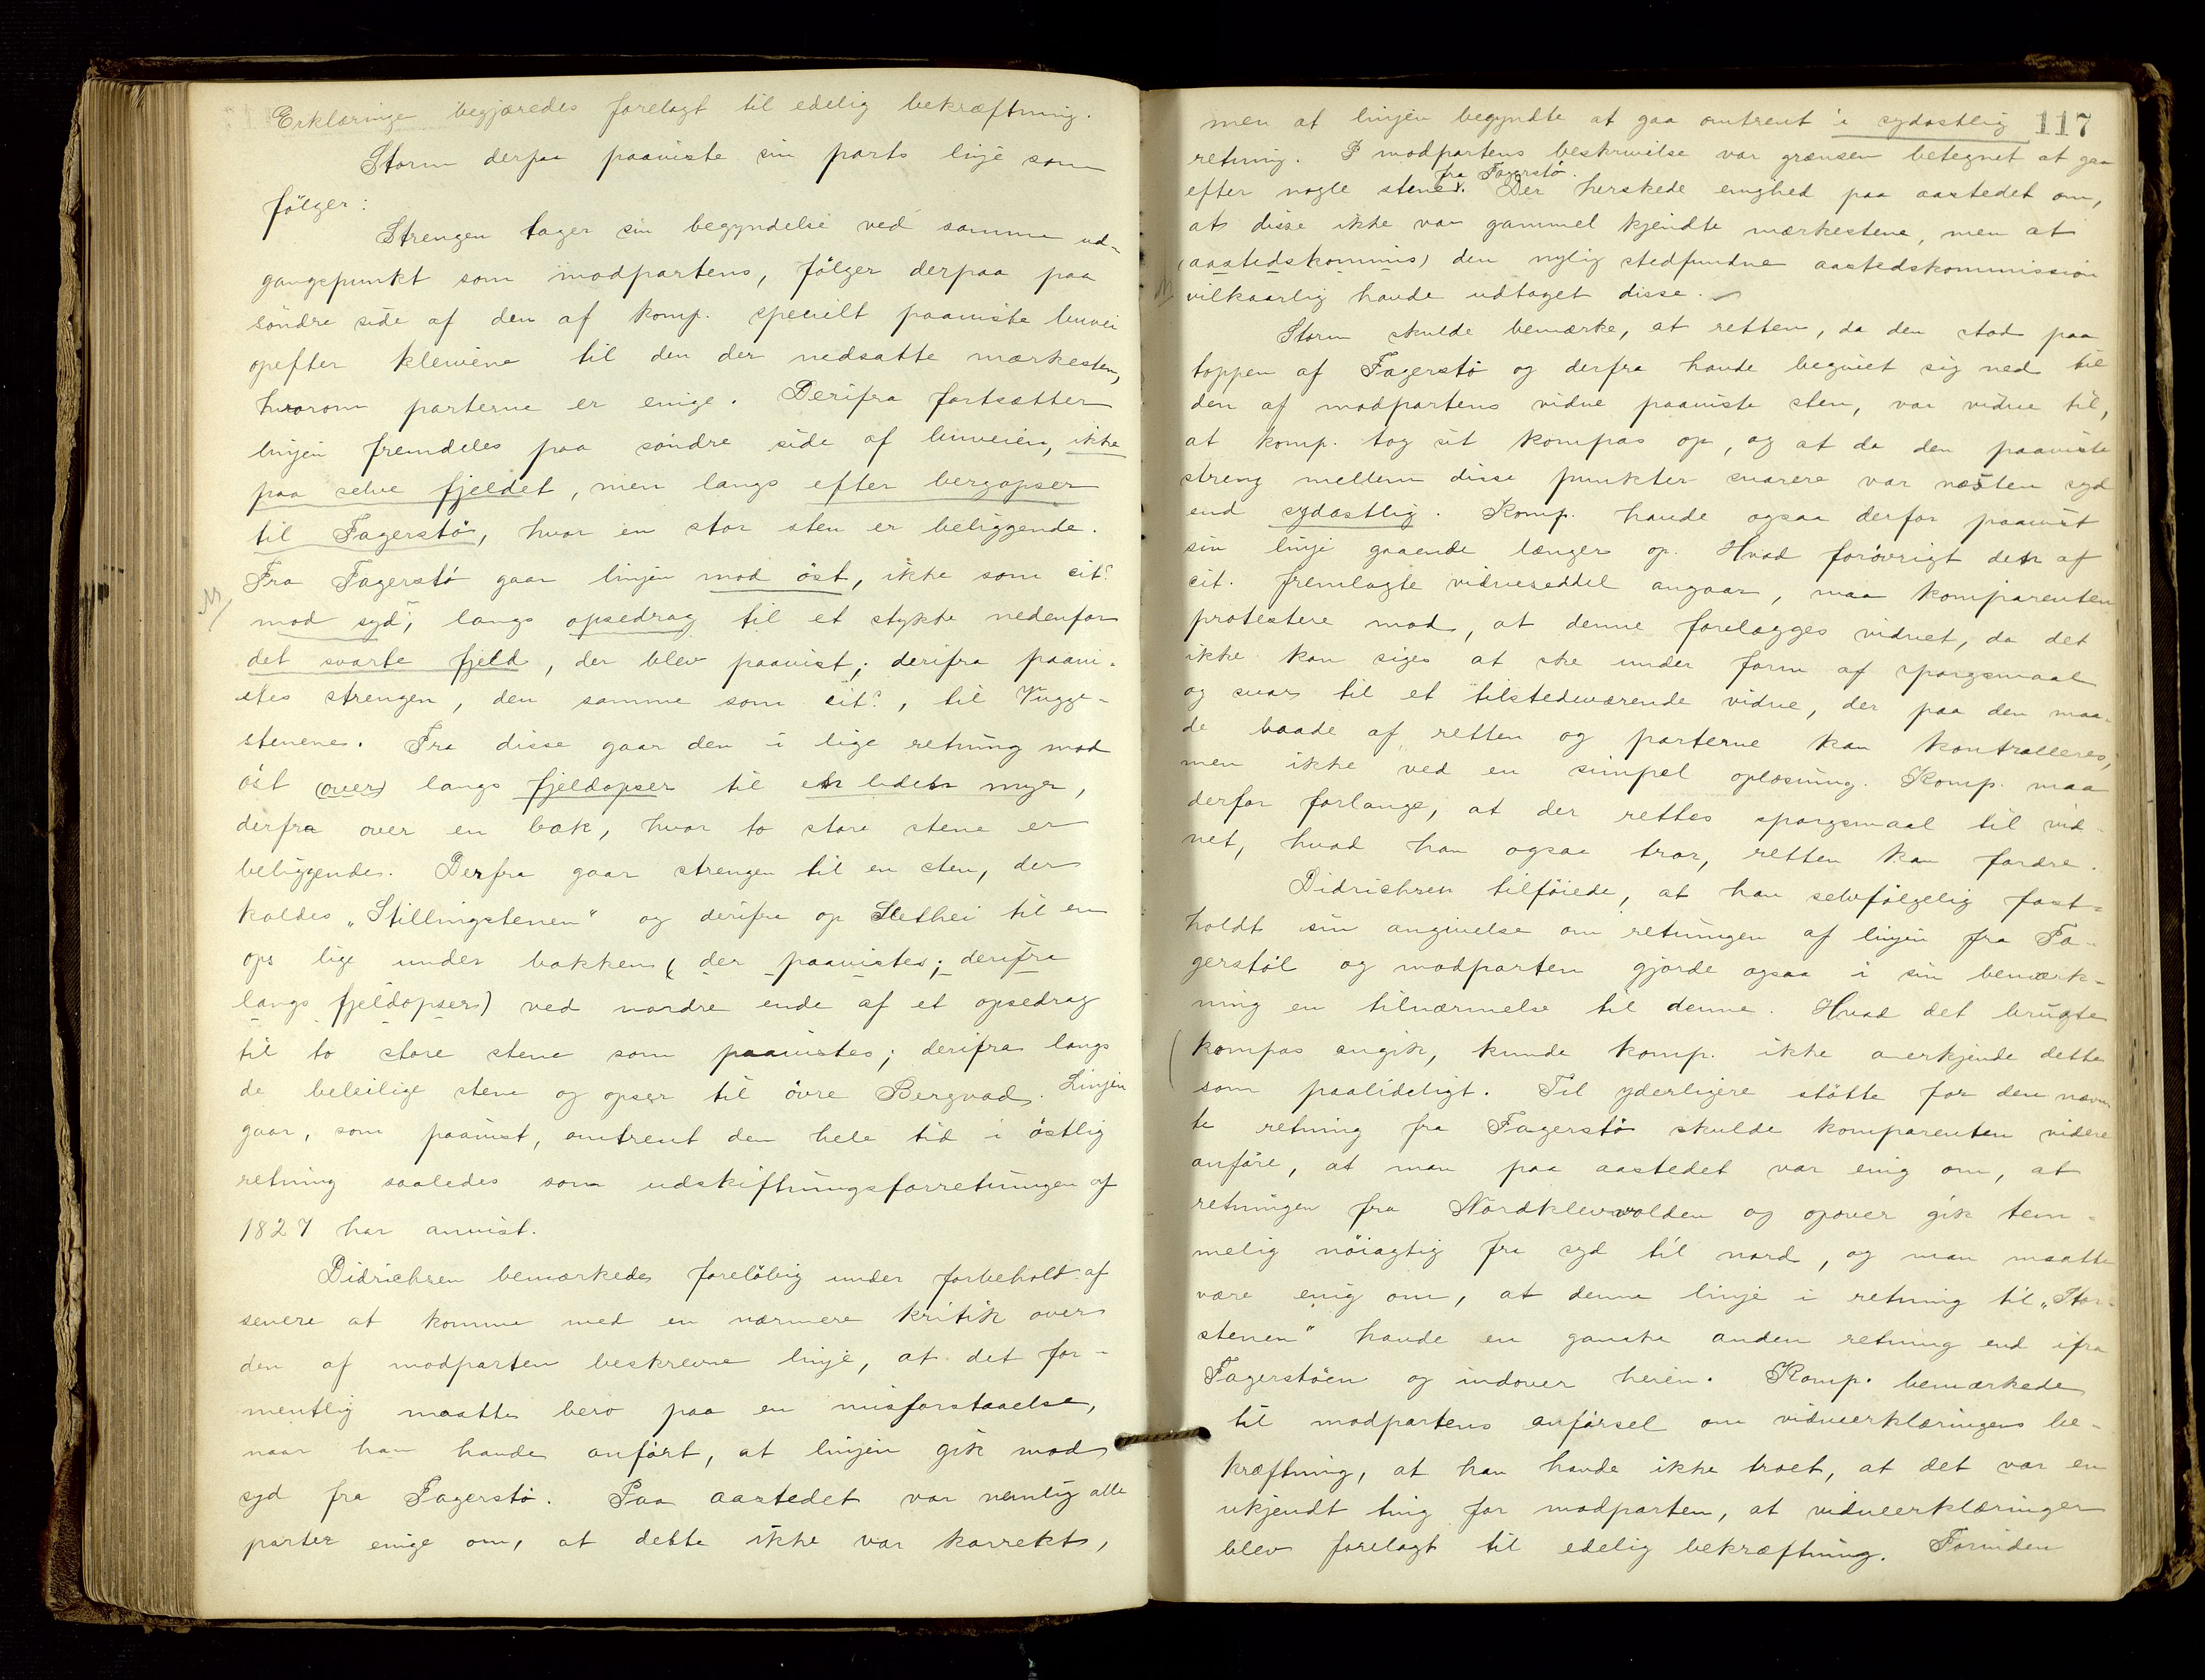 Erklæringe begjæredes forelagt til edelig bekræftning.
Storm derpaa paaviste sin parts linje som
fölger:
Strengen tager sin begyndelse ved samme ud-
gangspunkt som modpartens, fölger derpaa paa
söndre side af den af komp. specielt paaviste buvei
opefter kleivene til den der nedsatte mærkesten,
hvorom parterne er enige. Derifra fortsætter
linjen fremdeles paa söndre side af buveien, ikke
paa selve fjeldet, men langs efter bergopser
til Fagerstö, hvor en stor sten er beliggende.
Fra Fagerstö gaar linjen mod öst, ikke som cit.
mod syd, langs opsedrag til et stykke nedenfor
det svarte fjeld, der blev paavist; derifra paavi-
stes strengen, den samme som cit., til Vugge-
stenene. Fra disse gaar den i lige retning mod
öst (over) langs fjeldopser til en liden myr,
derfra over en bæk, hvor to store stene er
beliggende. Derfra gaar strengen til en sten, der
kaldes „Stillingstenen" og derifra op Slethei til en
ops lige under bakken (der paavistes; derifra
langs fjeldopser) ved nordre ende af et opsedrag
til to store stene som paavistes; derifra langs
de beleilige stene og opser til övre Bergvad. Linjen
gaar, som paavist, omtrent den hele tid i östlig
retning saaledes som udskiftningsforretningen af
1827 har anvist.
Didrichsen bemærkede foreløbig under forbehold af
senere at komme med en nærmere kritik over
den af modparten beskrevne linje, at det for-
mentlig maatte bero paa en misforstaaelse,
naar han havde anfört, at linjen gik mod
syd fra Fagerstö. Paa aastedet var nemlig alle
parter enige om, at dette ikke var korrekt,
117
men at linjen begyndte at gaa omtrent i sydostlig
retning. I modpartens beskrivelse var grænsen betegnet at gaa
fra Fagerstö
efter nogle stene. Der herskede enighed paa aastedet om,
at disse ikke var gammel kjendte mærkestene, men at
(aastedskommis) den nylig stedfundne aastedskommission
vilkaarlig havde udtaget disse.
Storm skulde bemærke, at retten, da den stod paa
toppen af Fagerstö og derfra havde begivet sig ned til
den af modpartens vidne paaviste sten, var vidne til,
at komp. tog sit kompas op, og at da den paaviste
streng mellem disse punkter snarere var næsten syd
end sydostlig. Komp. havde ogsaa derfor paavist
sin linje gaaende længer op. Hvad forövrigt den af
cit. fremlagte vidneseddel angaar, maa komparenten
protestere mod, at denne forelægges vidnet, da det
ikke kan siges at ske under form af spørgsmaal
og svar til et tilstedeværende vidne, der paa den maa-
de baade af retten og parterne kan kontrolleres,
men ikke ved en simpel oplæsning. Komp. maa
derfor forlange, at der rettes spørgsmaal til vid-
net, hvad han ogsaa tror, retten kan fordre.
Didrichsen tilföiede, at han selvfölgelig fast-
holdt sin angivelse om retningen af linjen fra Fa-
gerstöl og modparten gjorde ogsaa i sin bemærk-
ning en tilnærmelse til denne. Hvad det brugte
kompas angik, kunde komp. ikke anerkjende dette
som paalideligt. Til yderligere stötte for den nævn-
te retning fra Fagerstö skulde komparenten videre
anföre, at man paa aastedet var enig om, at
retningen fra Nordklevvolden og opover gik tem-
melig nöiagtig fra syd til nord, og man maatte
være enig om, at denne linje i retning til „Stor-
stenen" havde en ganske anden retning end ifra
Fagerstöen og indover heien. Komp. bemærkede
til modpartens anförsel om vidneerklæringens be-
kræftning, at han havde ikke troet, at det var en
ukjendt ting for modparten, at vidneerklæringer
blev forelagt til edelig bekræftning. Forinden